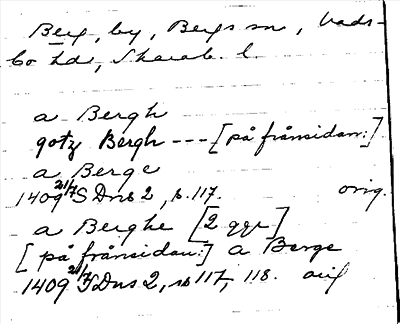 Berg, by, Bergs sn, Vads-
bo hd, Skarab. l.
a Bergh
gotz Bergh --- [på frånsidan:]
a Berge
1409 21/7 SDns 2, s. 117. orig.
a Berghe [2 ggr]
[på frånsidan:] a Berge
1409 21/7 SDns 2, s. 117, 118. orig